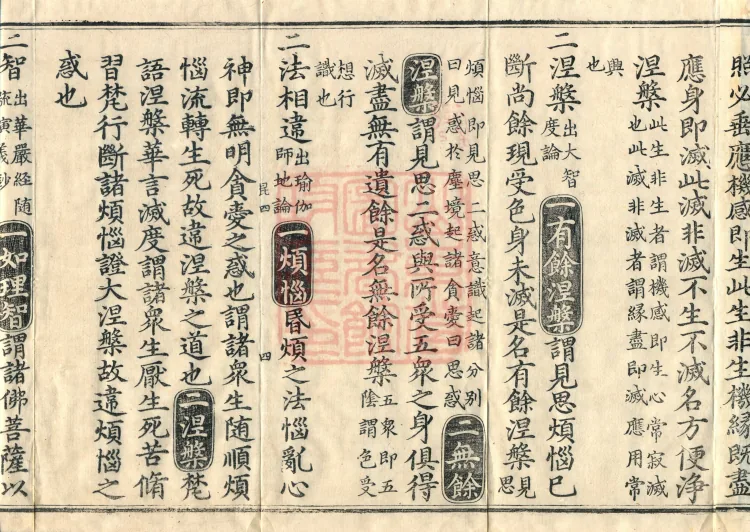 照必垂應機感即生此生非生機緣既盡
應身即滅此滅非滅不生不滅名方便浄
涅槃此生非生者謂機感即生心常寂滅
也此滅非滅者謂緣盡即滅應用常
與
也
二涅槃出大智
度論一有餘涅槃謂見思煩惱已
斷尚餘現受色身未滅是名有餘涅槃見思
煩惱即見思二惑意識起諸分別
曰見惑於塵境起諸貪愛曰思惑二無餘
涅槃謂見思二惑與所受五衆之身俱得
滅盡無有遺餘是名無餘涅槃五衆即五
陰謂色受
想行
識也
二法相違出瑜伽
師地論一煩惱昬煩之法惱亂心
神即無明貪愛之惑也謂諸衆生随順煩
惱流轉生死故違涅槃之道也二涅槃梵
語涅槃華言滅度謂諸衆生厭生死苦脩
習梵行斷諸煩惱證大涅槃故違煩惱之
惑也
二智出華嚴經随
疏演義鈔一如理智謂諸佛菩薩以